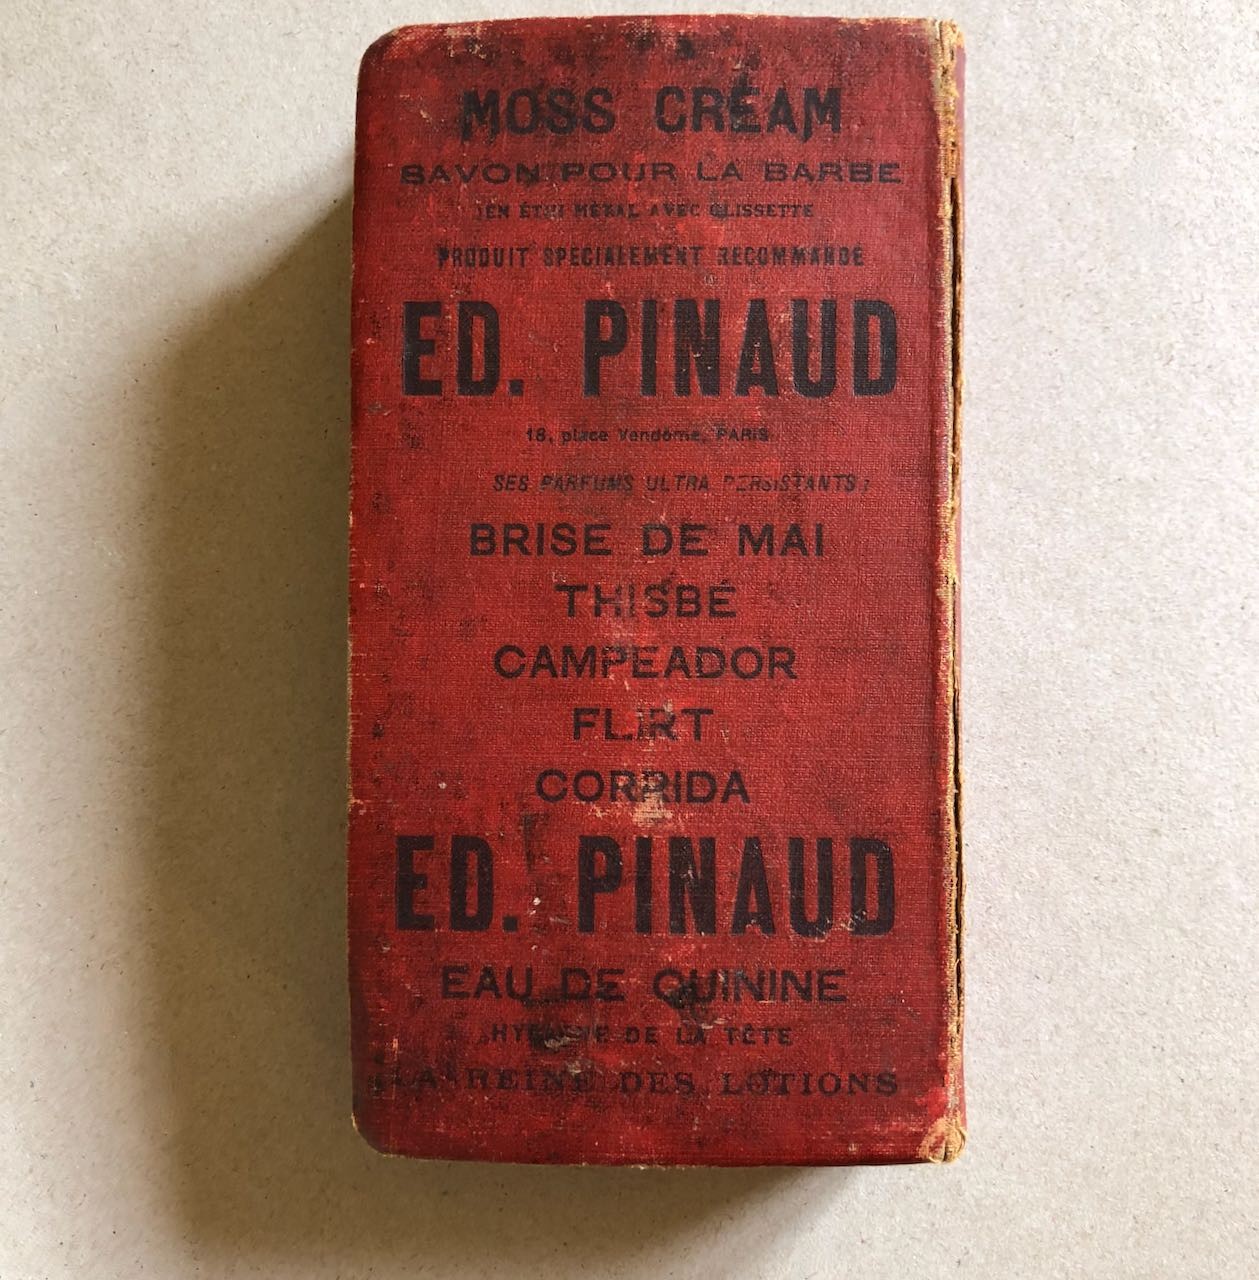 MOSS CREAM
SAVON POUR LA BARBE
EN ÉTUI MÉTAL AVEC GLISSETTE
PRODUIT SPECIALEMENT RECOMMANDÉ
ED. PINAUD
18, place Vendôme, PARIS
SES PARFUMS ULTRA PERSISTANTS:
BRISE DE MAI
THISBÉ
CAMPEADOR
FLIRT
CORRIDA
ED. PINAUD
EAU DE QUININE
HYGIÈNE DE LA TÊTE
LA REINE DES LOTIONS